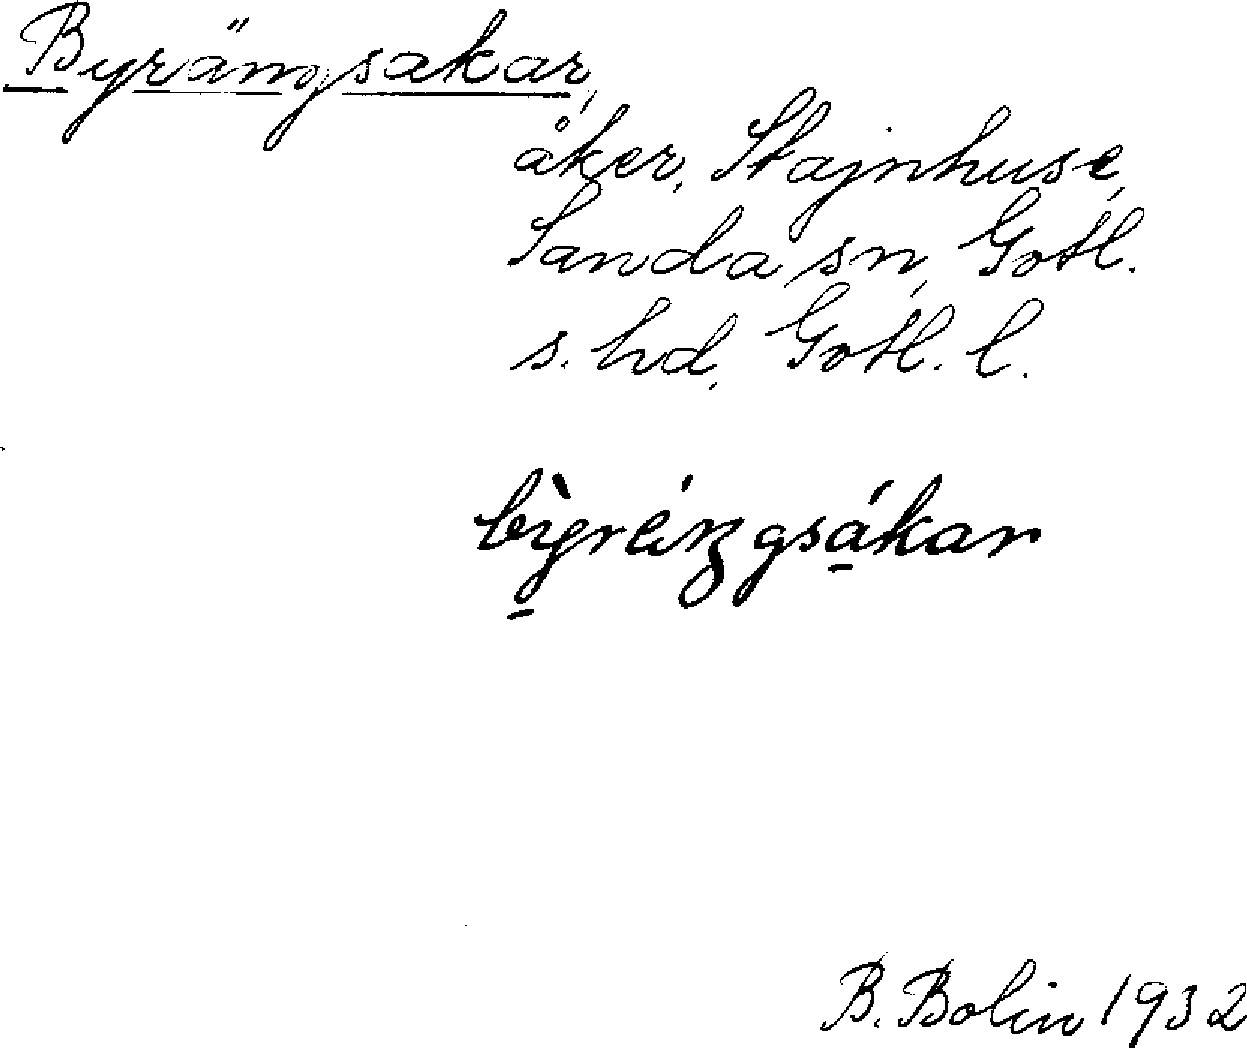 Byrängsakar,
åker, Stajnhuse,
Sanda sn, Gotl.
s. hd, Gotl. l.
B. Bolin 1932